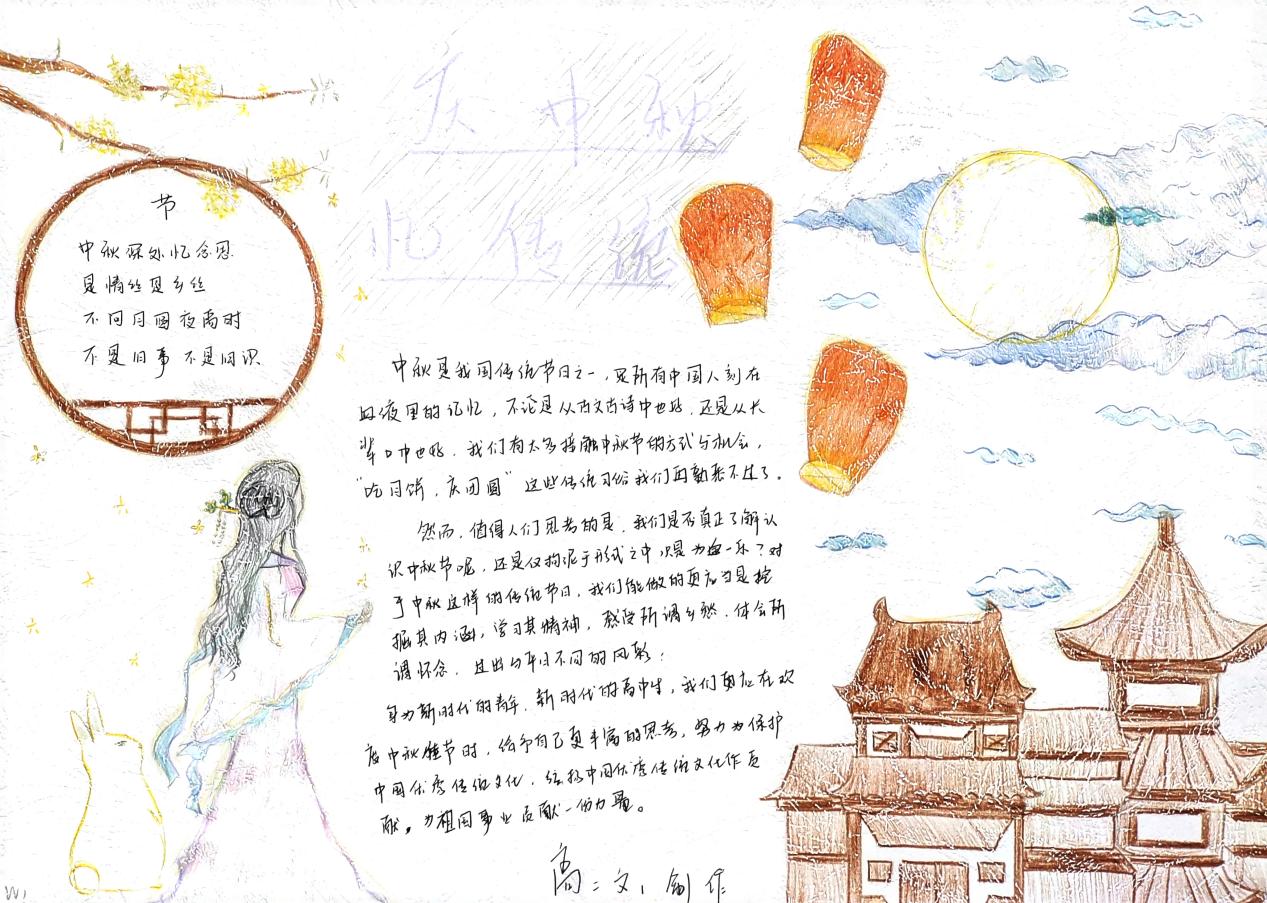 庆中秋
忆传统
节
中秋深处忆念思
是情丝是乡丝
不问月圆夜离时
不是旧事 不是旧识
中秋是我国传统节日之一，是所有中国人刻在
血液里的记忆，不论是从古文古诗中也好，还是从长
辈口中也好，我们有太多接触中秋节的方式与机会，
“吃月饼，庆团圆”这些传统习俗我们再熟悉不过了。
然而，值得人们思考的是，我们是否真正了解认
识中秋节呢，还是仅拘泥于形式之中 只是为一乐？对
于中秋这样的传统节日，我们能做的更应当是挖
掘其内涵，学习其精神，感受所谓乡愁，体会所
谓怀念，过出与平日不同的风彩；
身为新时代的青年，新时代的高中生，我们更应在欢
度中秋佳节时，给予自己更丰富的思考，努力为保护
中国优秀传统文化，弘扬中国优秀传统文化作贡
献，为祖国事业贡献一份力量。
高二文1 创作